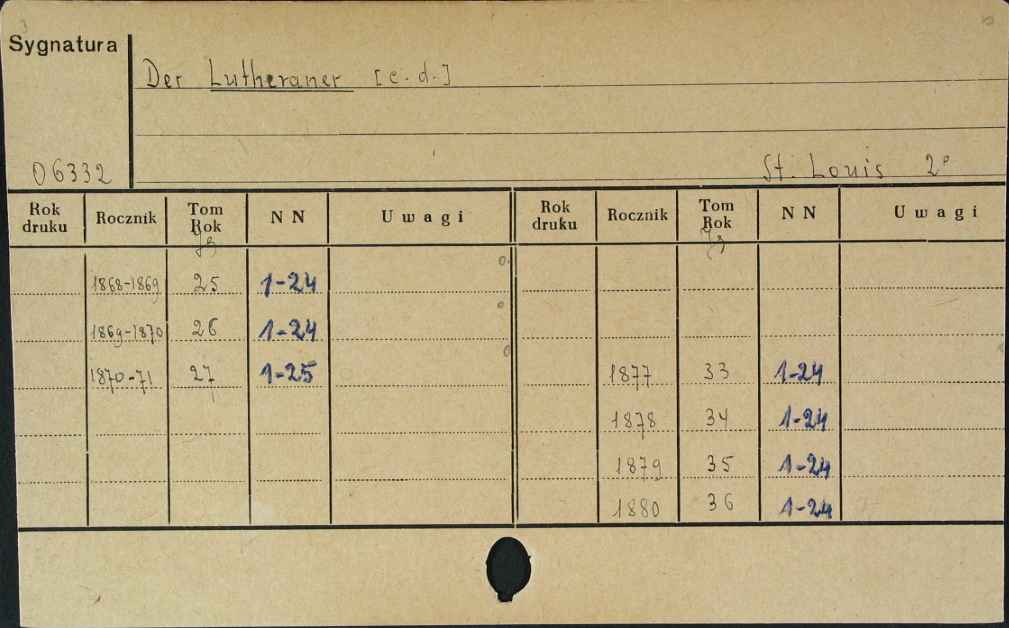 Sygnatura
Der Lutheraner [c.d.]
06332
St. Louis 2°
Rok druku Rocznik Tom Rok NN Uwagi Rok druku Rocznik Tom Rok NN Uwagi
Jg Jg
1868-1869 25 1-24
1869-1870 26 1-24
1870-71 27 1-25 1877 33 1-24
1878 34 1-24
1879 35 1-24
1880 36 1-24